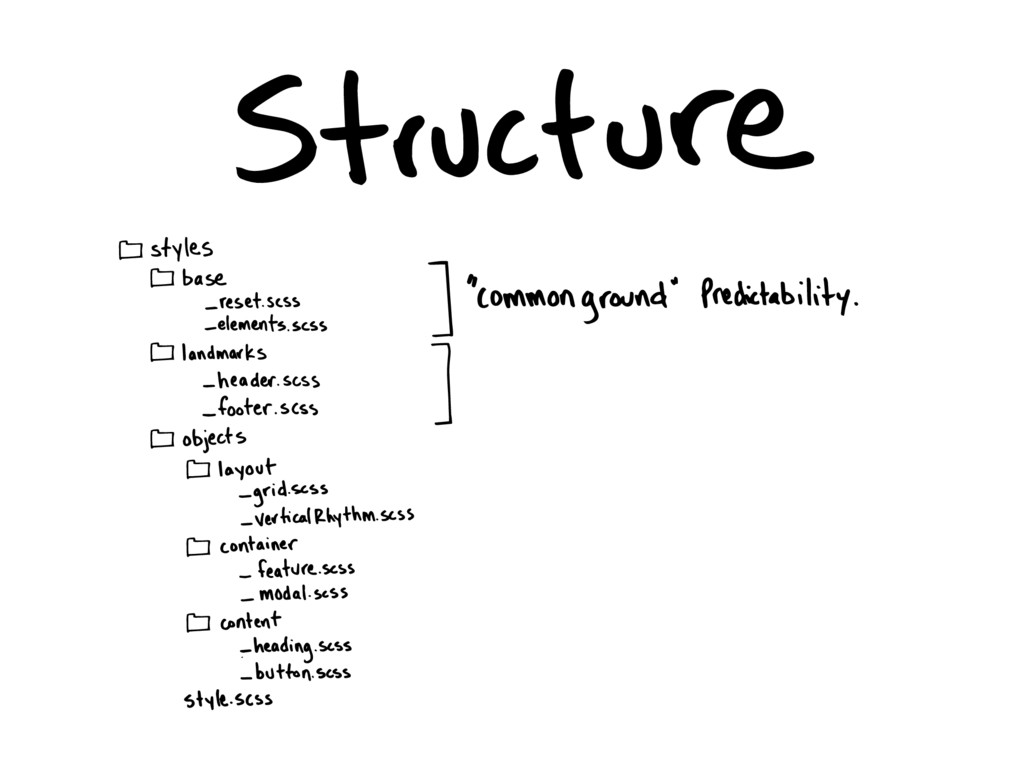 Structure
styles
base
_reset.scss
_elements.scss
"common ground" Predictability.
landmarks
_header.scss
_footer.scss
objects
layout
_grid.scss
_verticalRhythm.scss
container
_feature.scss
_modal.scss
content
_heading.scss
_button.scss
style.scss